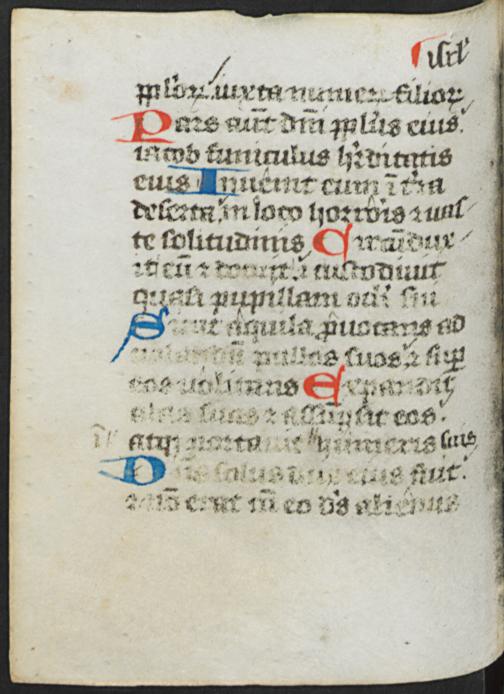 isrl'
pplor iuxta numeru filior
Pars aut dni ppl's eius.
iacob funiculus hrditatis
eius Inuenit eum i tra
deserta in loco horroris z uas
te solitudinis Circudux
it eu z docuit z custodiuit
quasi pupillam oculi sui
Sicut aquila puocans ad
uolandu pullos suos z sup
eos uolitans Expandit
alas suas z assupsit eos.
atq portauit in humeris suis
Dns solus dux eius fuit.
z no erat cu eo ds alienus